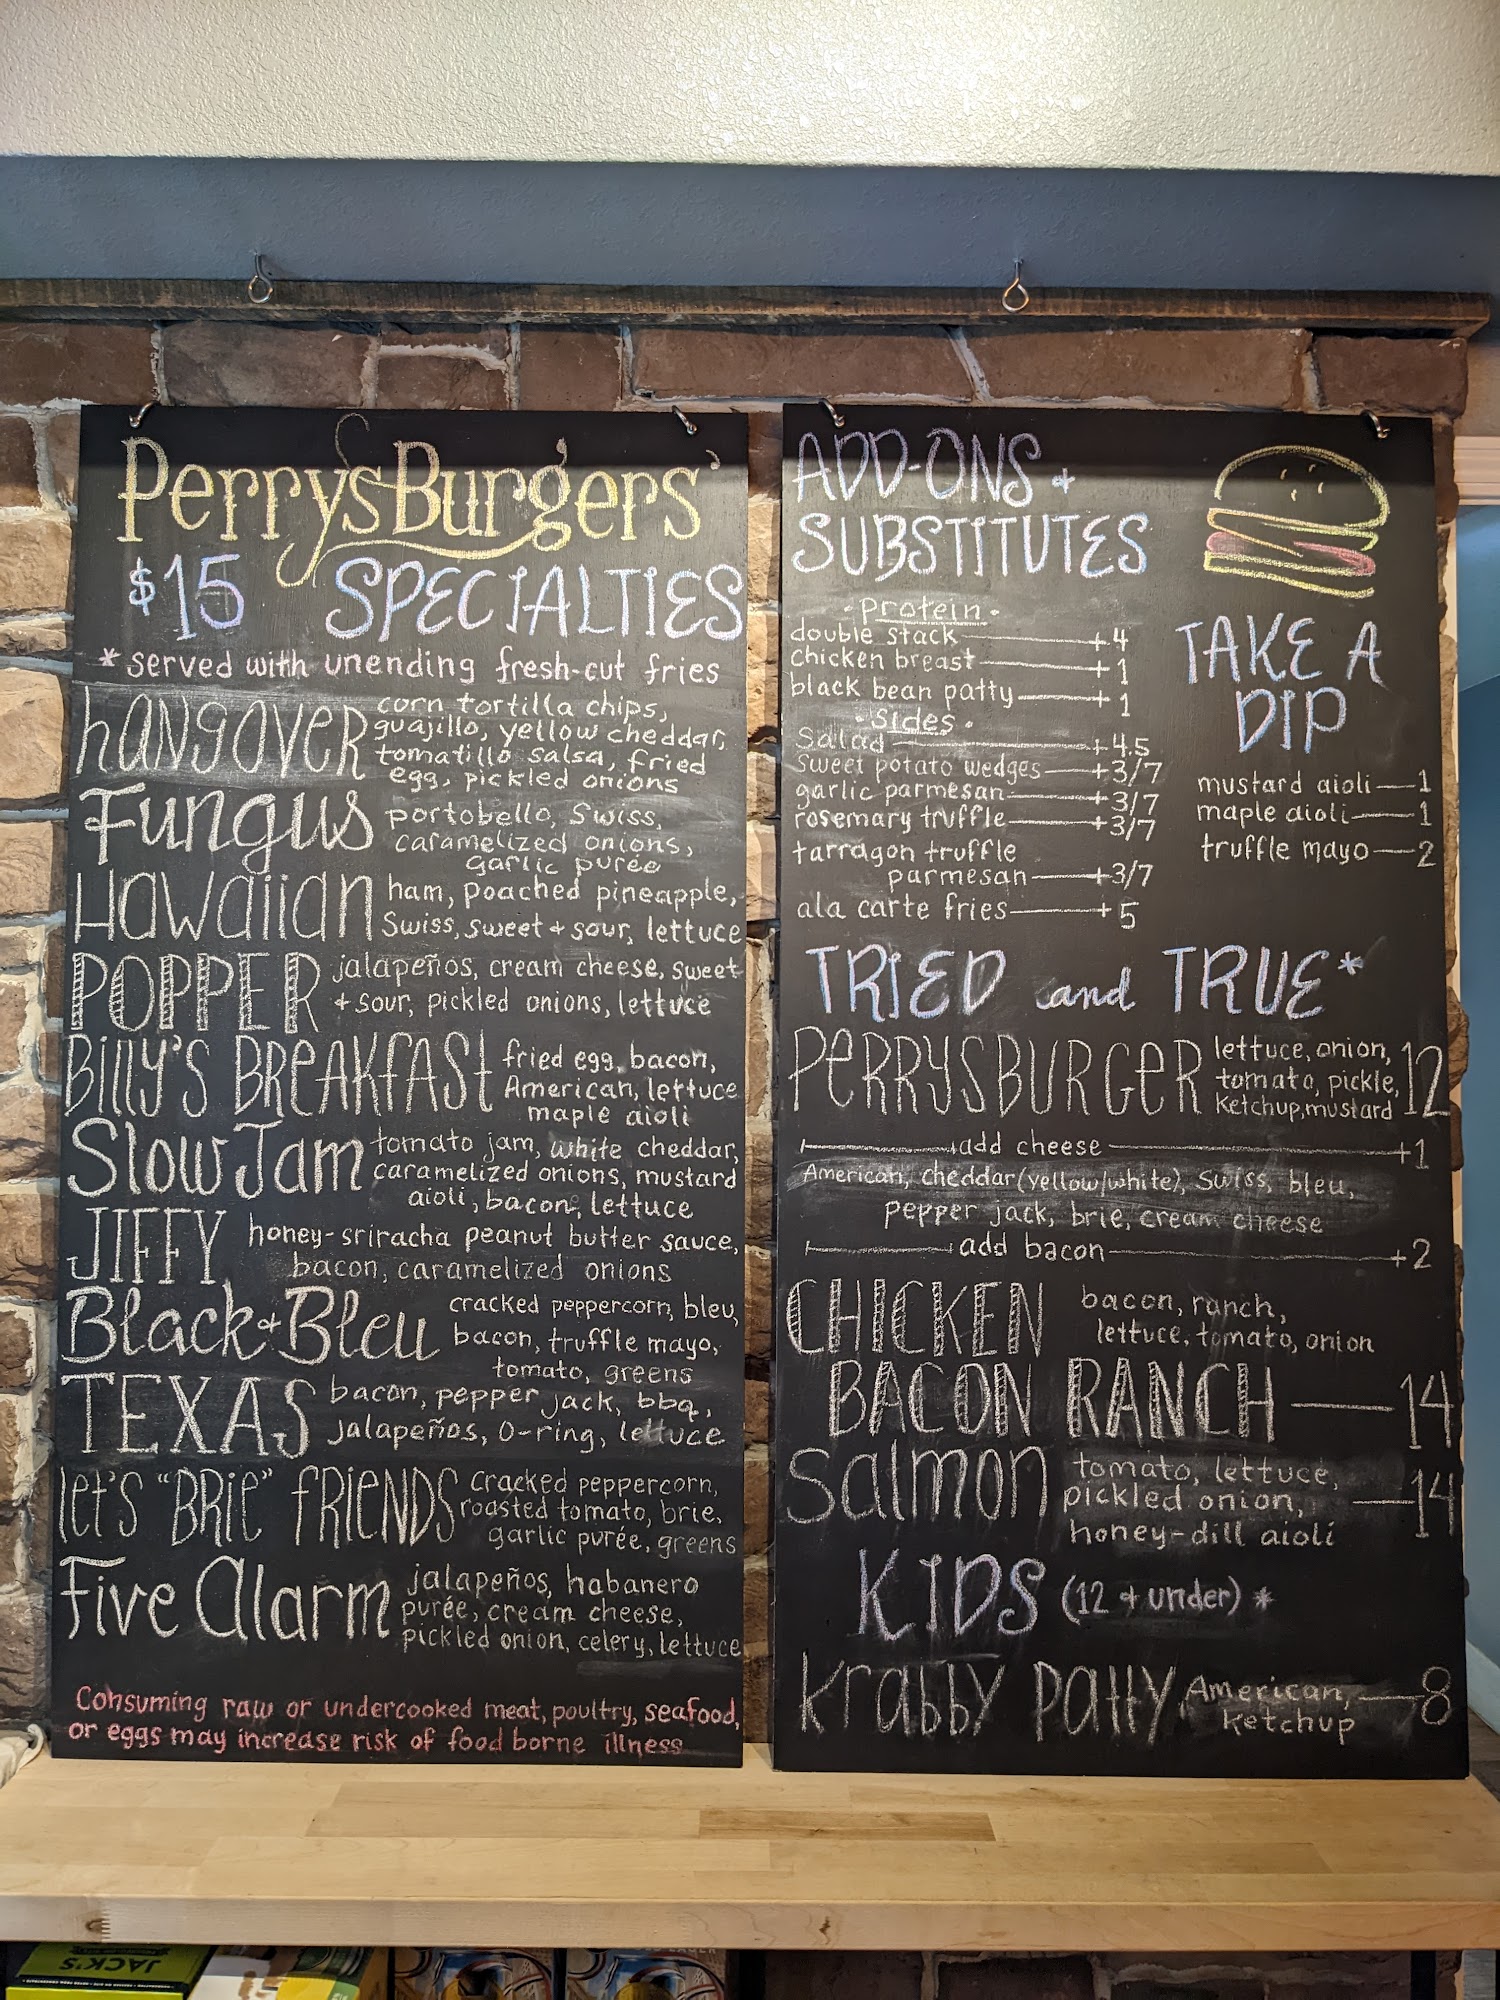 Perrys Burgers'
$15 SPECIALTIES
*served with unending fresh-cut fries
hANgOVER corn tortilla chips,
guajillo, yellow cheddar,
tomatillo salsa, fried
egg, pickled onions
Fungus portobello, Swiss,
caramelized onions,
garlic purée
Hawaiian ham, poached pineapple,
Swiss, sweet + sour, lettuce
POPPER jalapeños, cream cheese, sweet
+ sour, pickled onions, lettuce
Billy's BREAKfASt fried egg, bacon,
American, lettuce
maple aioli
Slow Jam tomato jam, white cheddar,
caramelized onions, mustard
aioli, bacon, lettuce
JIFFY honey-sriracha peanut butter sauce,
bacon, caramelized onions
Black + Bleu cracked peppercorn, bleu,
bacon, truffle mayo,
tomato, greens
TEXAS bacon, pepper jack, bbq,
jalapeños, O-ring, lettuce
let's "BRie" fRiENDS cracked peppercorn,
roasted tomato, brie,
garlic purée, greens
Five Alarm jalapeños, habanero
purée, cream cheese,
pickled onion, celery, lettuce
Consuming raw or undercooked meat, poultry, seafood,
or eggs may increase risk of food borne illness
ADD-ONS +
SUBSTITUTES
·Protein·
double stack +4
chicken breast +1
black bean patty +1
·Sides·
Salad +4.5
sweet potato wedges +3/7
garlic parmesan +3/7
rosemary truffle +3/7
tarragon truffle
parmesan +3/7
ala carte fries +5
TAKE A
DIP
mustard aioli 1
maple aioli 1
truffle mayo 2
TRIED and TRUE*
PERRYSBURGER lettuce, onion, 12
tomato, pickle,
Ketchup, mustard
add cheese +1
American, cheddar (yellow/white), Swiss, bleu,
pepper jack, brie, cream cheese
add bacon +2
CHICKEN bacon, ranch,
lettuce, tomato, onion
BACON RANCH 14
Salmon tomato, lettuce,
pickled onion, 14
honey-dill aioli
KIDS (12 + under) *
Krabby Patty American, 8
Ketchup
JACK'S